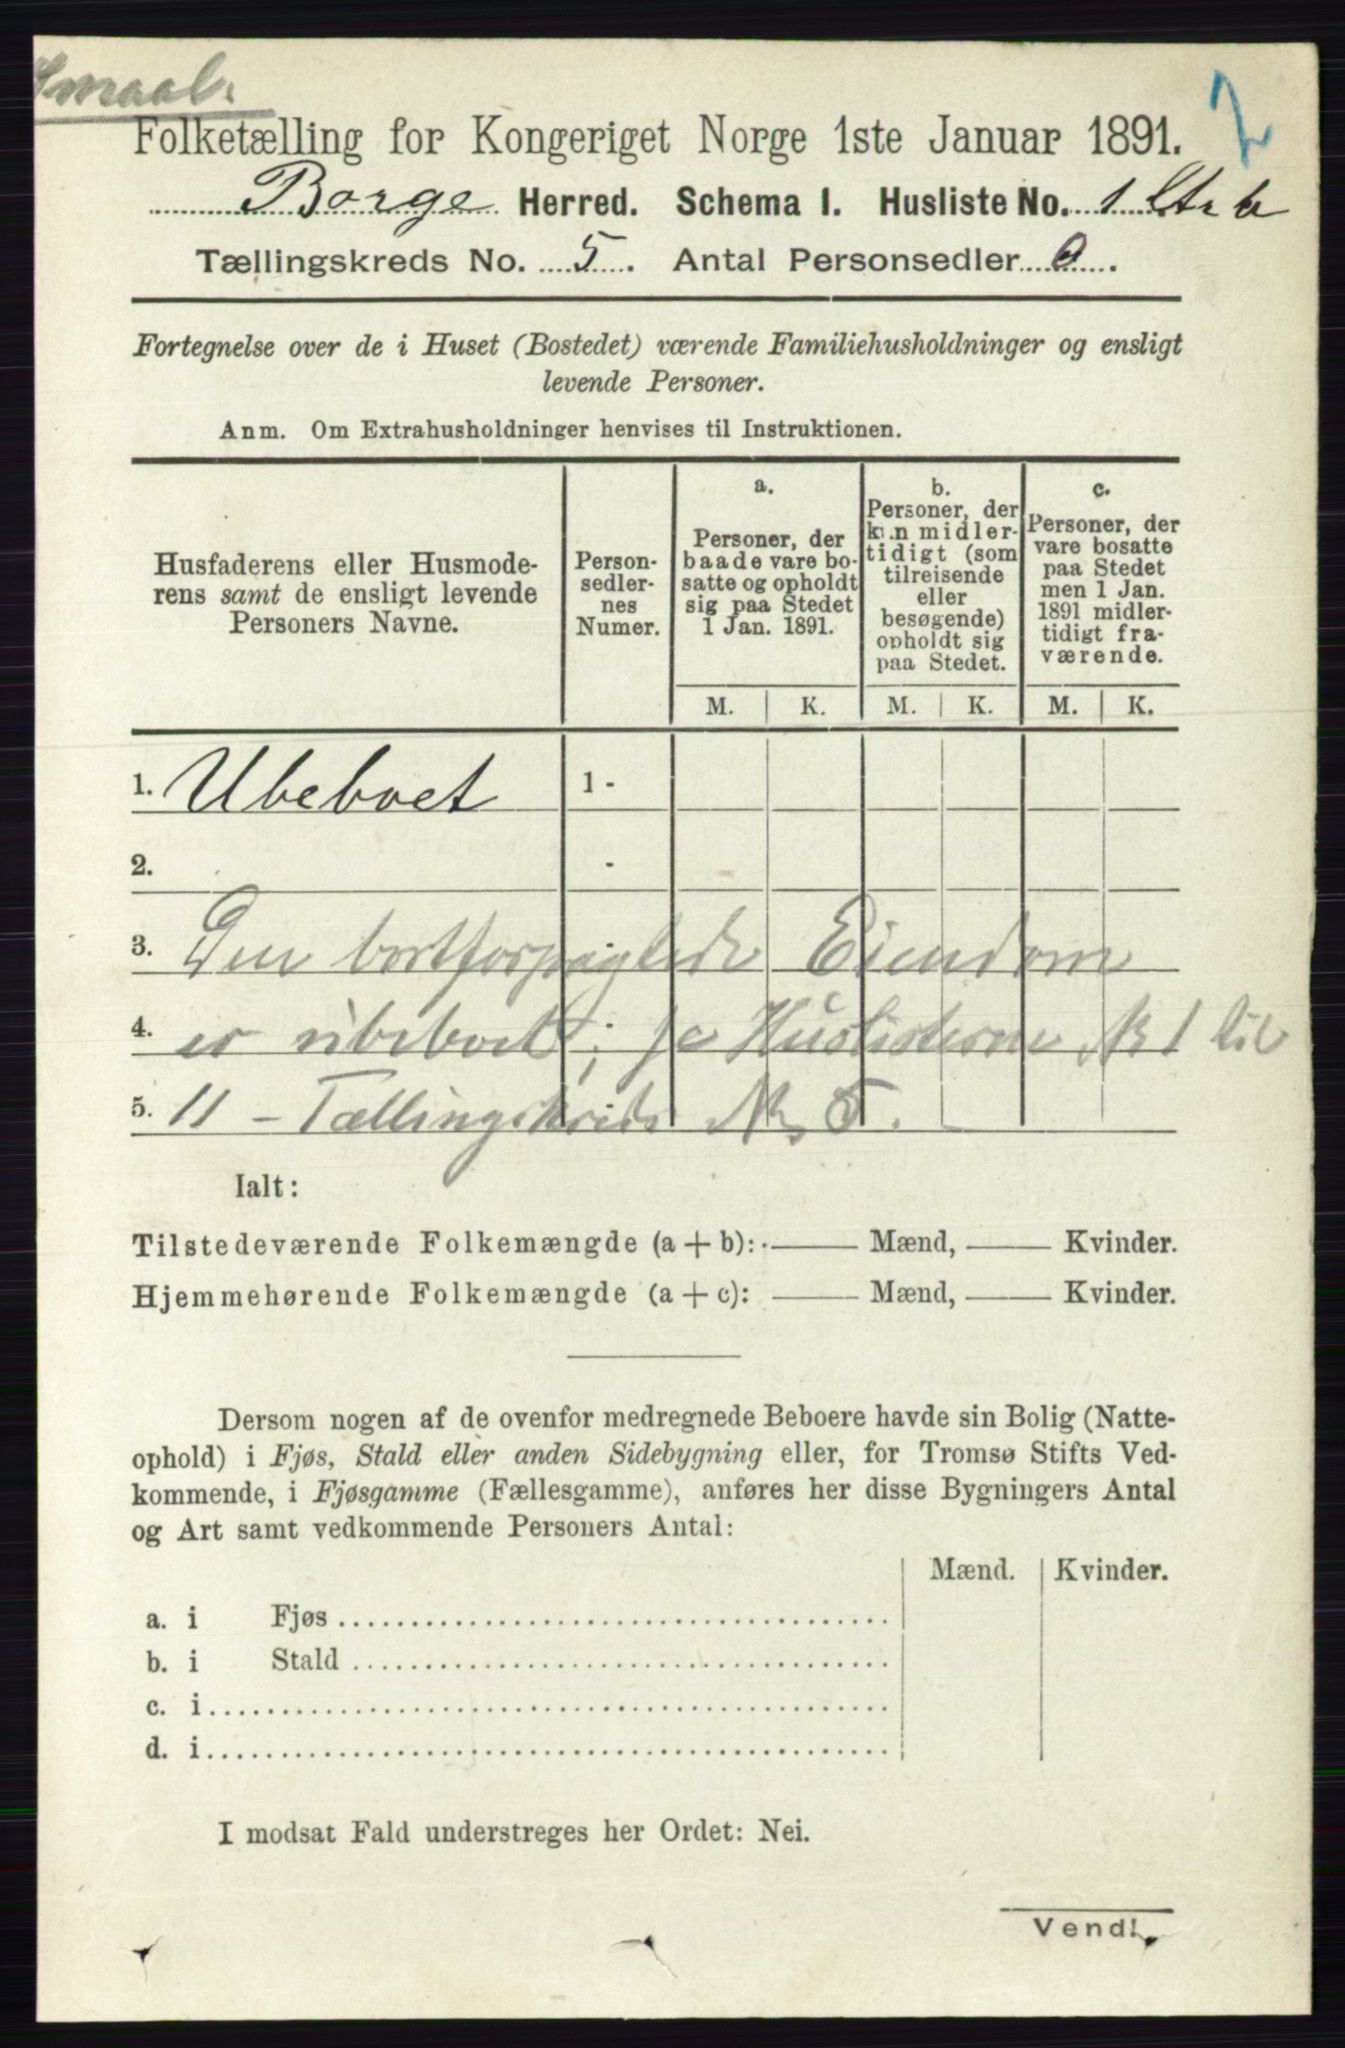 Smaal.
2
Folketælling for Kongeriget Norge 1ste Januar 1891.
Borge Herred. Schema I. Husliste No. 1
Tællingskreds No. 5. Antal Personsedler 0.
Fortegnelse over de i Huset (Bostedet) værende Familiehusholdninger og ensligt
levende Personer.
Anm. Om Extrahusholdninger henvises til Instruktionen.
Husfaderens eller Husmode-
rens samt de ensligt levende
Personers Navne.
Person-
sedler-
nes
Numer.
a.
Personer, der
baade vare bo-
satte og opholdt
sig paa Stedet
1 Jan. 1891.
b.
Personer, der
kun midler-
tidigt (som
tilreisende
eller
besøgende)
opholdt sig
paa Stedet.
c.
Personer, der
vare bosatte
paa Stedet
men 1 Jan.
1891 midler-
tidigt fra-
værende.
M. K. M. K. M. K.
1. Ubeboet 1 -
2. -
3. Den Eiendom
4. er ubeboet; Huslisterne No 1 til
5. 11 - Tællingskreds No 5.
Ialt:
Tilstedeværende Folkemængde (a + b): — Mænd, — Kvinder.
Hjemmehørende Folkemængde (a + c): — Mænd, — Kvinder.
Dersom nogen af de ovenfor medregnede Beboere havde sin Bolig (Natte-
ophold) i Fjøs, Stald eller anden Sidebygning eller, for Tromsø Stifts Ved-
kommende, i Fjøsgamme (Fællesgamme), anføres her disse Bygningers Antal
og Art samt vedkommende Personers Antal:
Mænd. Kvinder.
a. i Fjøs
b. i Stald
c. i
d. i
I modsat Fald understreges her Ordet: Nei.
Vend!